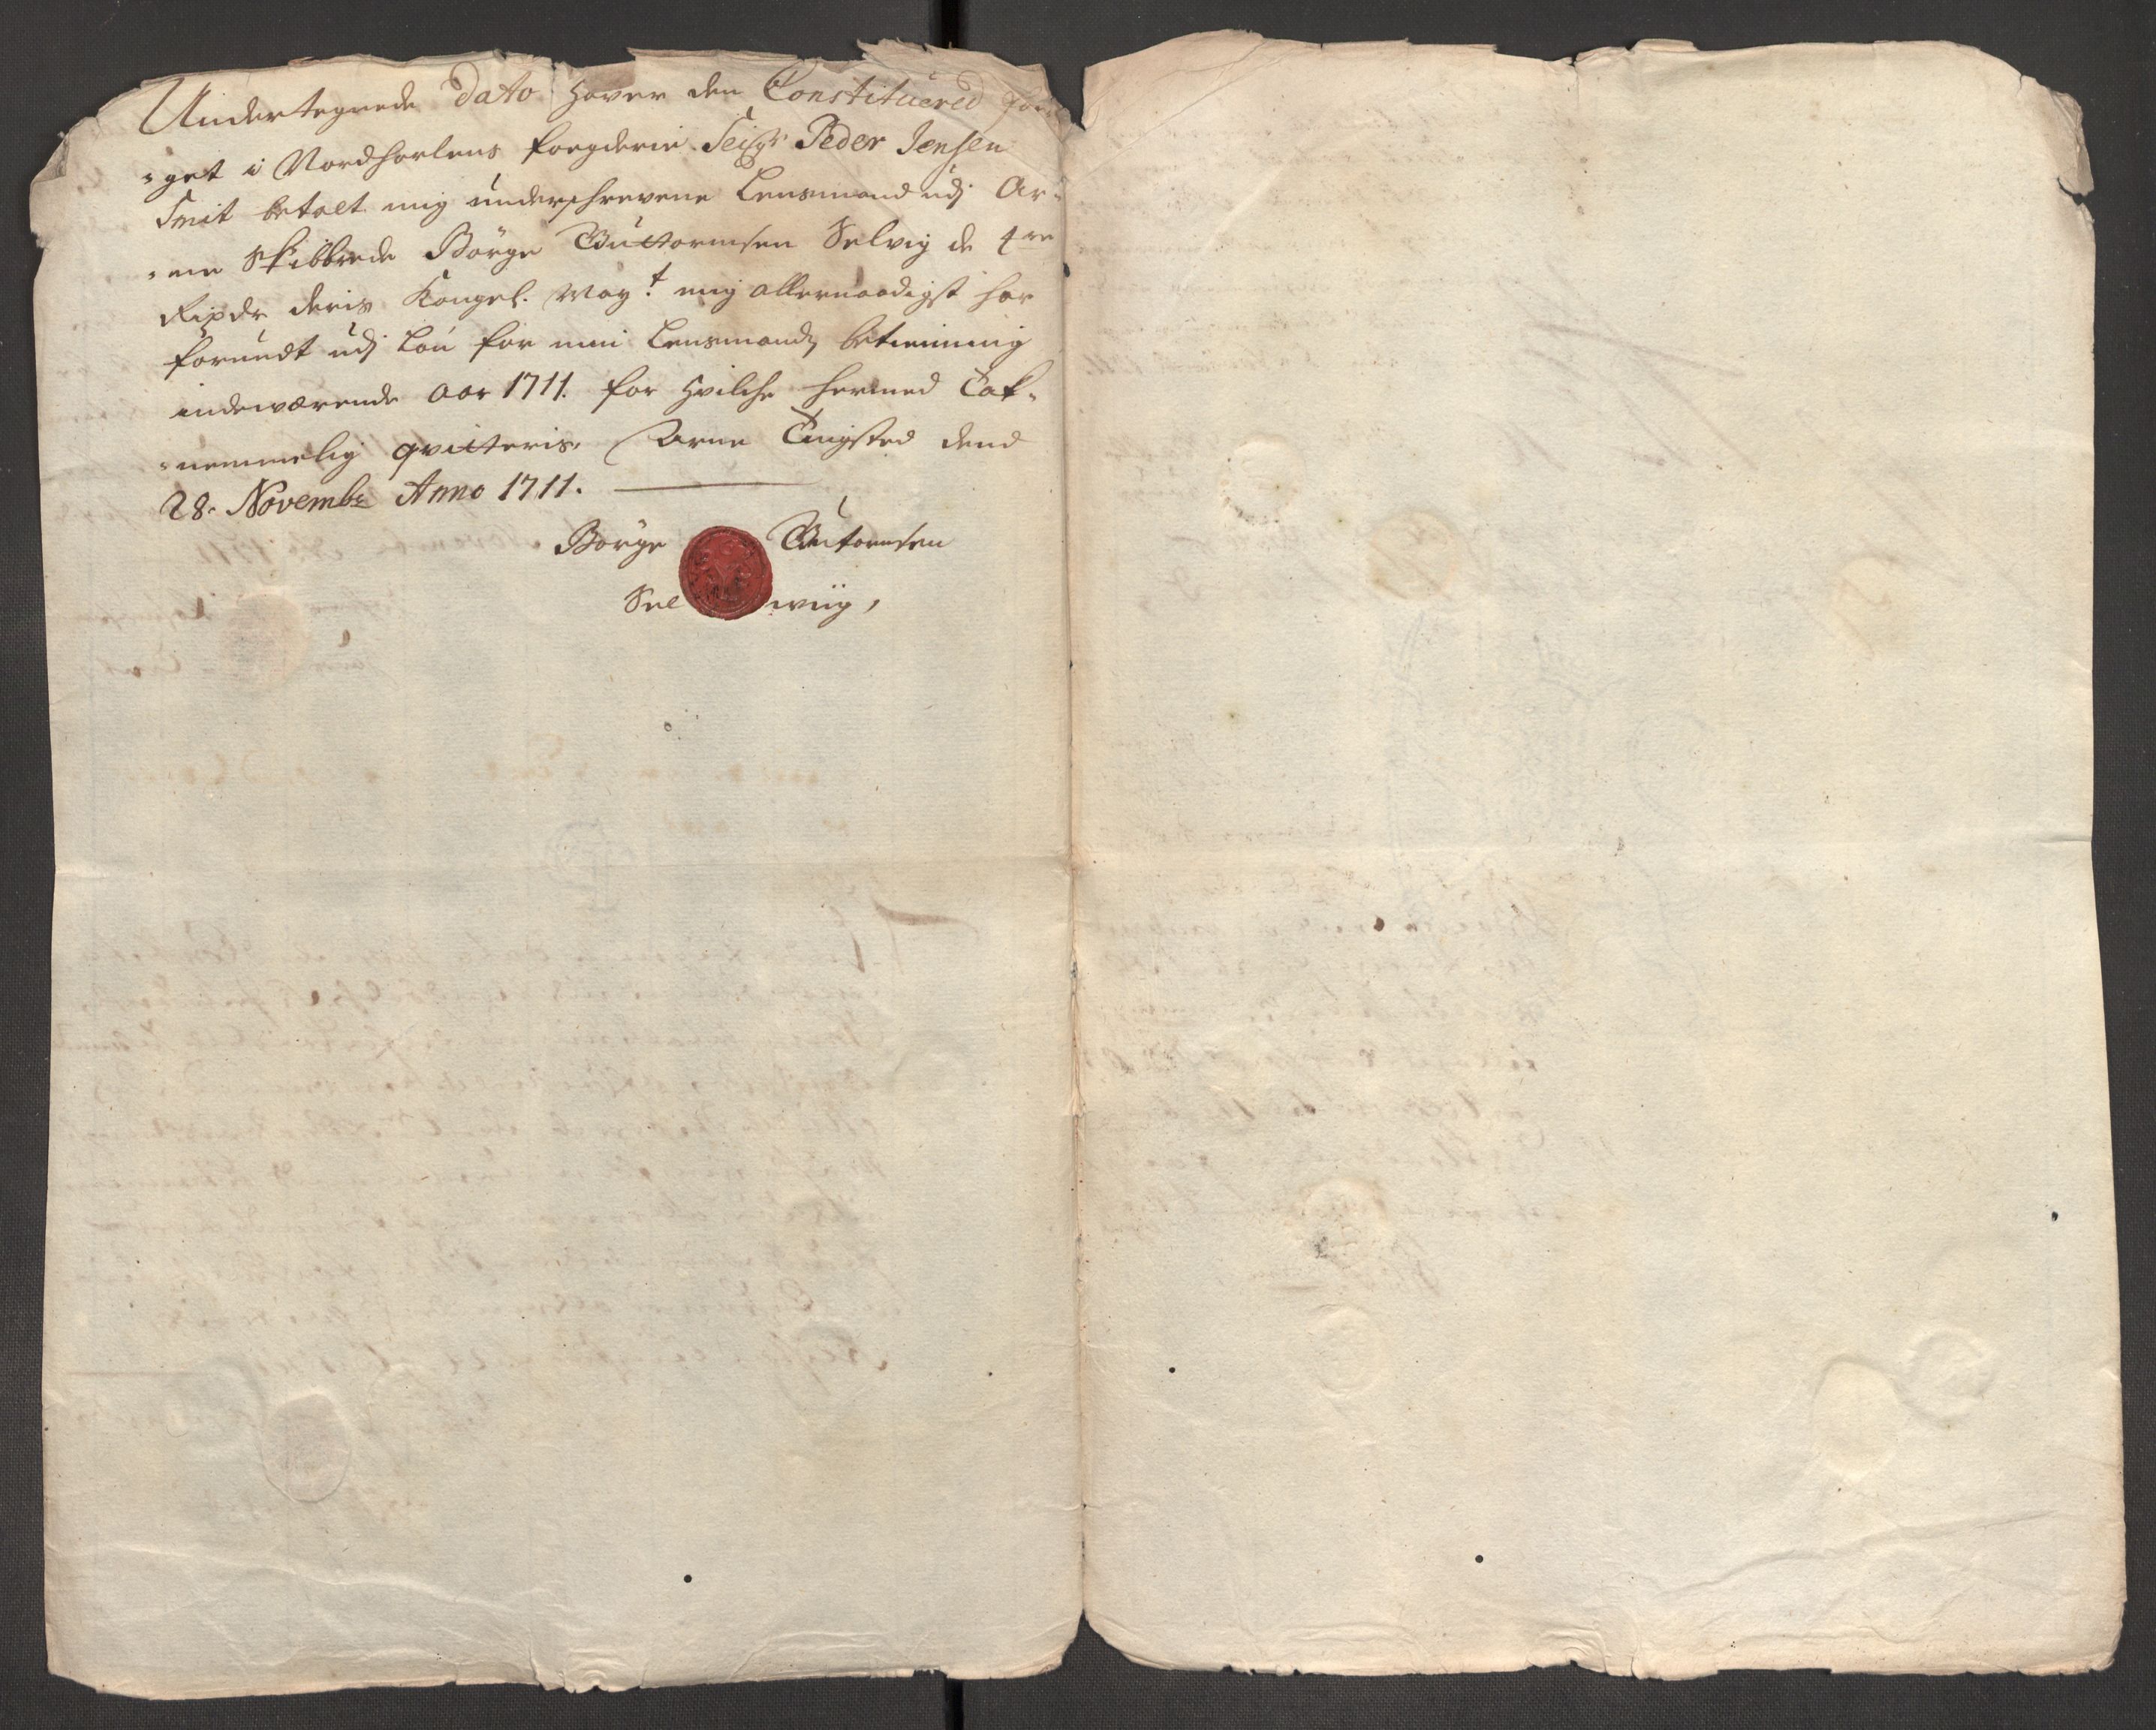 Undertegnede Dato hafver den Constituered
-get i Nordhorlens fogderie Seigr Peder Jensen
Smit betalt mig underschrevene Lensmand udj Ar-
-ne Skibbrede Börge Guttormsen Selvig de 4re
Rixdr deris Kongel. May:t mig allernaadigst har
forundt udj Lön for min Lensmands betienning
indeværende Aar 1711. for hvilche hermed Tak-
-nemmelig qvitteris. Arne Tingsted dend
28. Novembr Anno 1711.
Börge Gutormsen
Sel wiig,